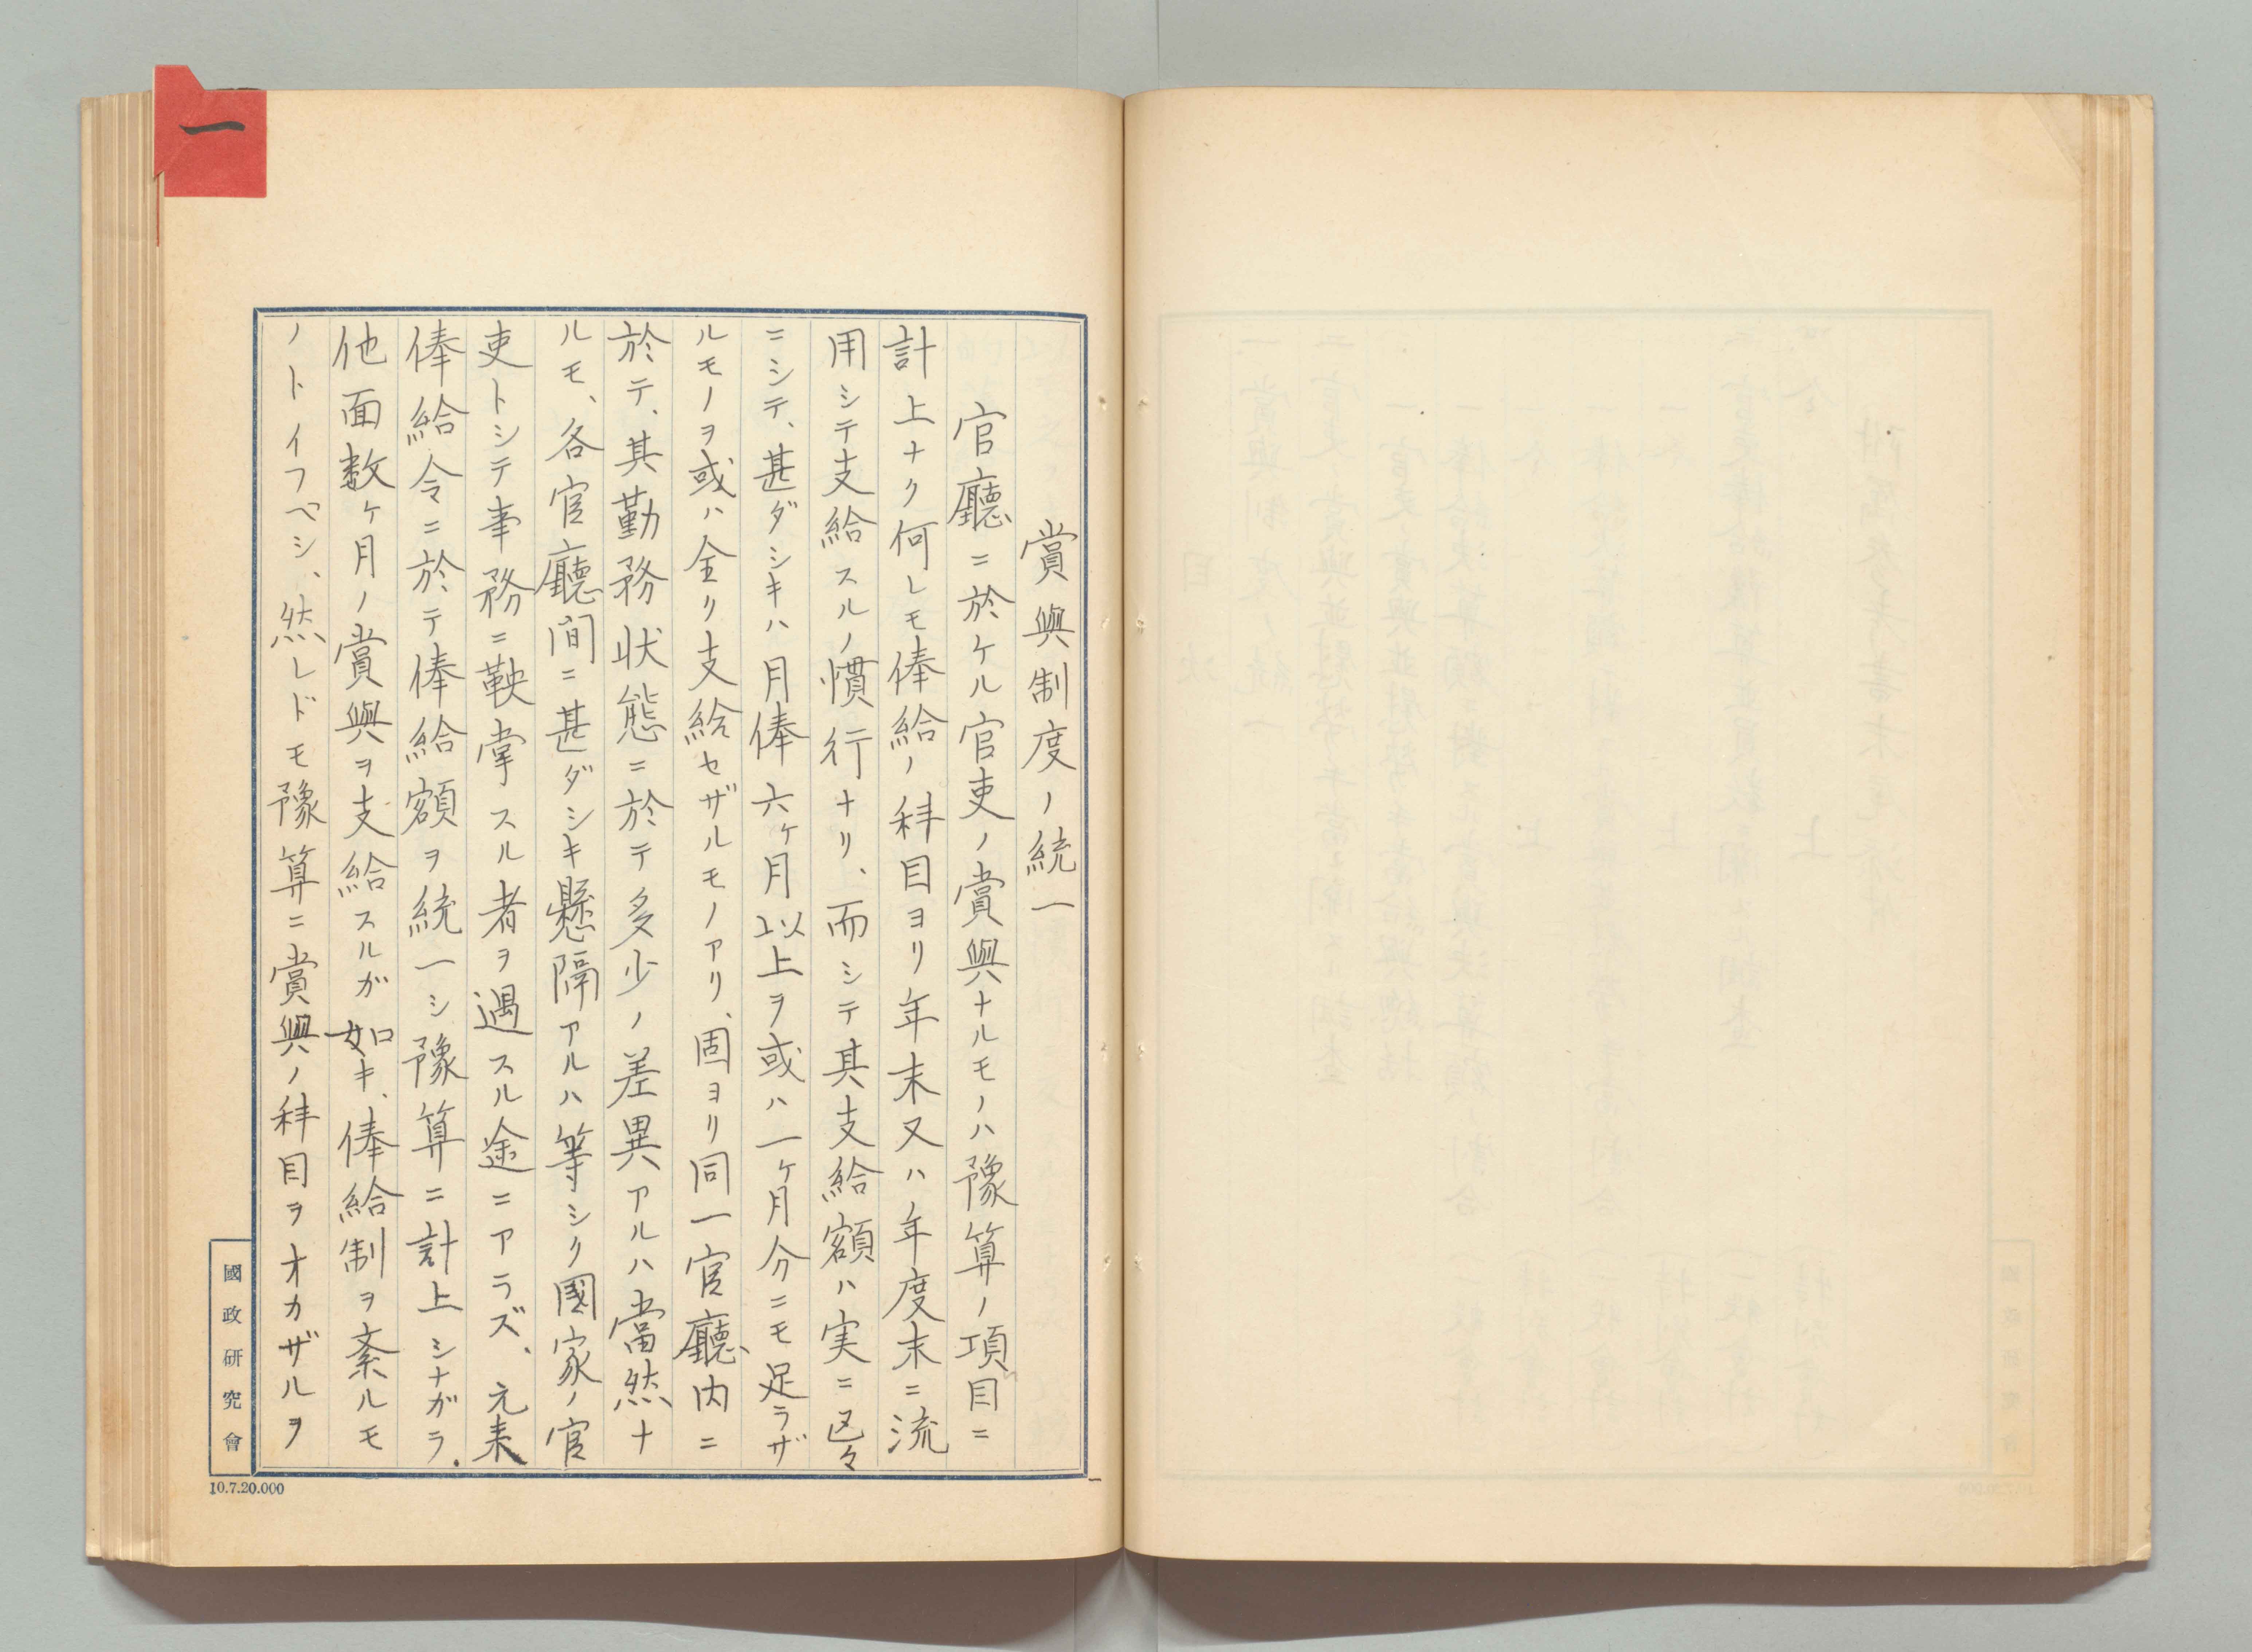 一
賞與制度ノ統一
官廳ニ於ケル官吏ノ賞與ナルモノハ豫算ノ項目ニ
計上ナク何レモ俸給ノ科目ヨリ年末又ハ年度末ニ流
用シテ支給スルノ慣行ナリ、而シテ其支給額ハ実ニ区々
ニシテ、甚ダシキハ月俸六ヶ月以上ヲ或ハ一ヶ月分ニモ足ラザ
ルモノヲ或ハ全ク支給セザルモノアリ、固ヨリ同一官廳内ニ
於テ、其勤務状態ニ於テ多少ノ差異アルハ當然ナ
ルモ、各官廳間ニ甚ダシキ懸隔アルハ等シク國家ノ官
吏トシテ事務ニ鞅掌スル者ヲ遇スル途ニアラズ、元来
俸給令ニ於テ俸給額ヲ統一シ豫算ニ計上シナガラ.
他面数ヶ月ノ賞與ヲ支給スルガ如キ、俸給制ヲ紊ルモ
ノトイフベシ、然レドモ豫算ニ賞與ノ科目ヲオカザルヲ
國政研究會
10.7.20.000
一